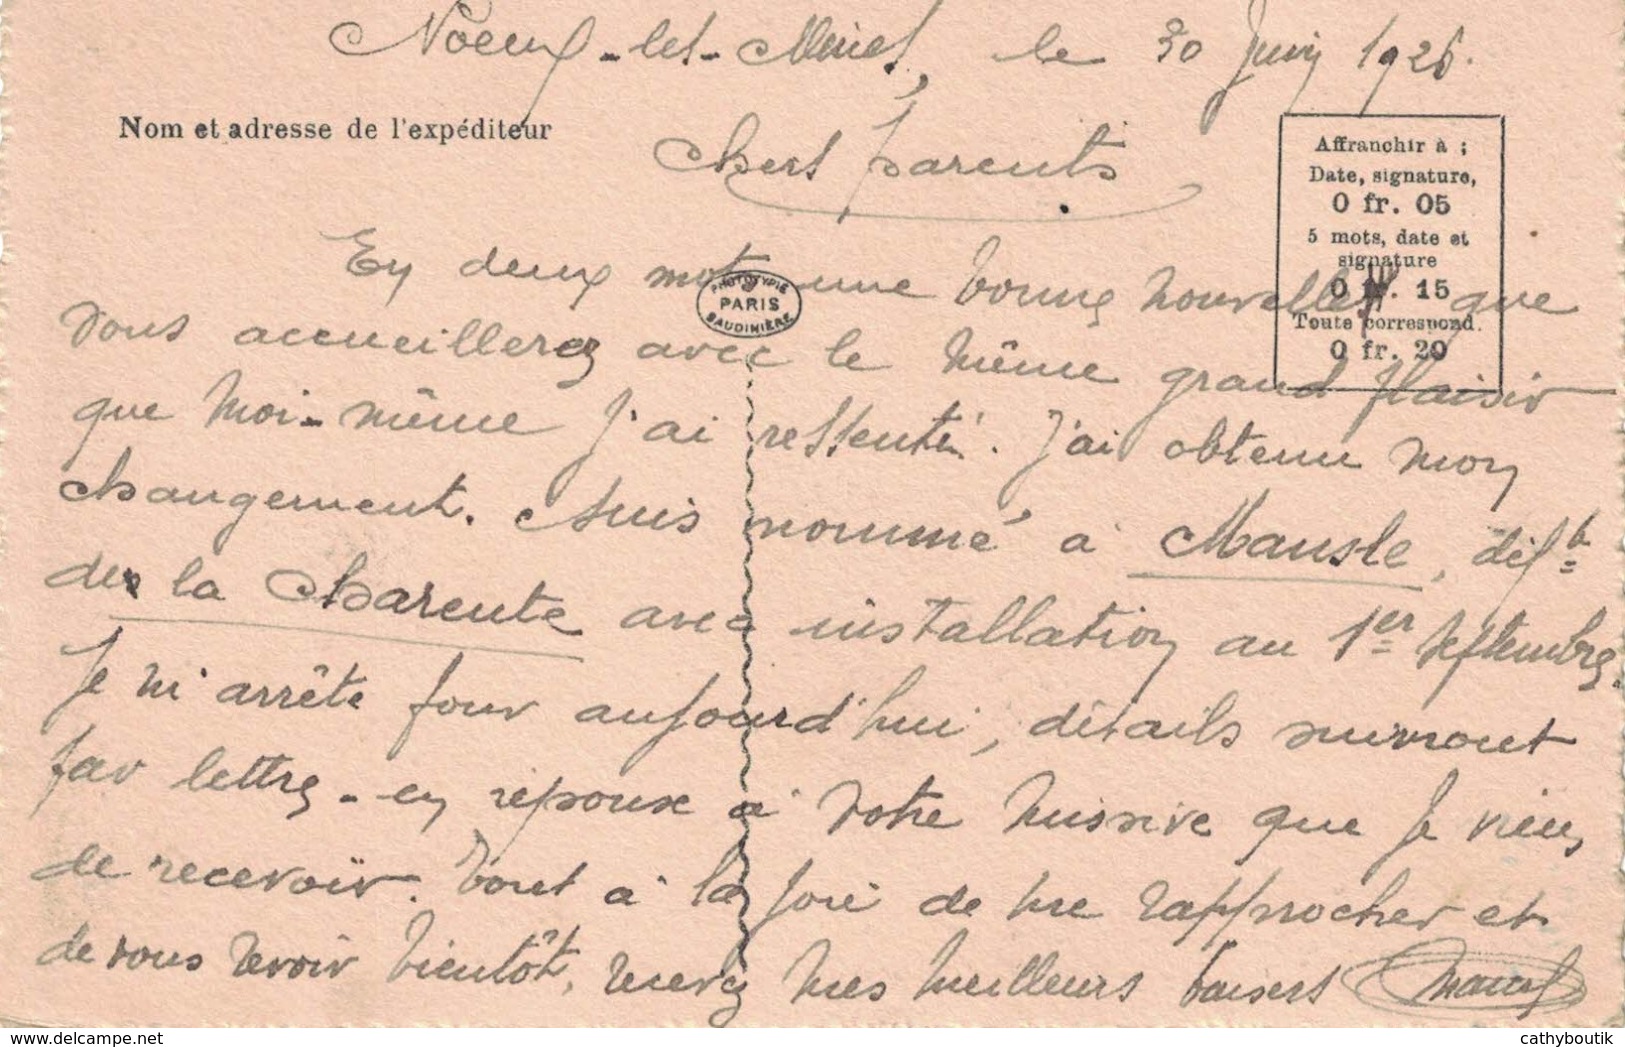 Nœux-les-Mines, le 30 Juin 1926.
Nom et adresse de l'expéditeur
Chers parents,
Affranchir à :
Date, signature,
0 fr. 05
5 mots, date et
signature
0 fr. 15
Toute correspond.
0 fr. 20
PHOTOTYPIE
PARIS
BAUDINIÈRE
En deux mots une bonne nouvelle que
vous accueillerez avec le même grand plaisir
que moi-même j'ai ressenti. J'ai obtenu mon
changement. Suis nommé à Mansle, dépt
de la Charente avec installation au 1er Septembre.
Je m'arrête pour aujourd'hui, détails suivront
par lettre - en réponse à votre missive que je viens
de recevoir. Tout à la joie de me rapprocher et
de vous revoir bientôt, recevez mes meilleurs baisers Marcel
cathyboutik